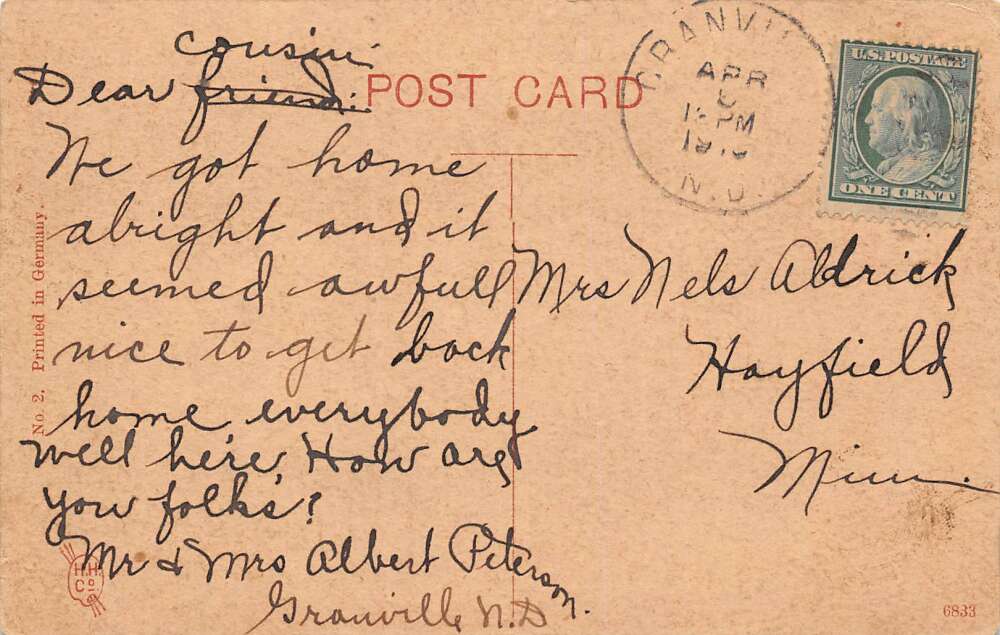 cousin
Dear friend:
POST CARD
We got home
alright and it
seemed awfull
nice to get back
home everybody
well here, How are
you folks?
Mr & Mrs Albert Peterson.
Granville N.D
Mrs Nels Aldrick
Hayfield
Minn.
GRANVIL
APR
PM
N.D
U.S. POSTAGE
ONE CENT
No. 2. Printed in Germany.
H.H.
Co
6833